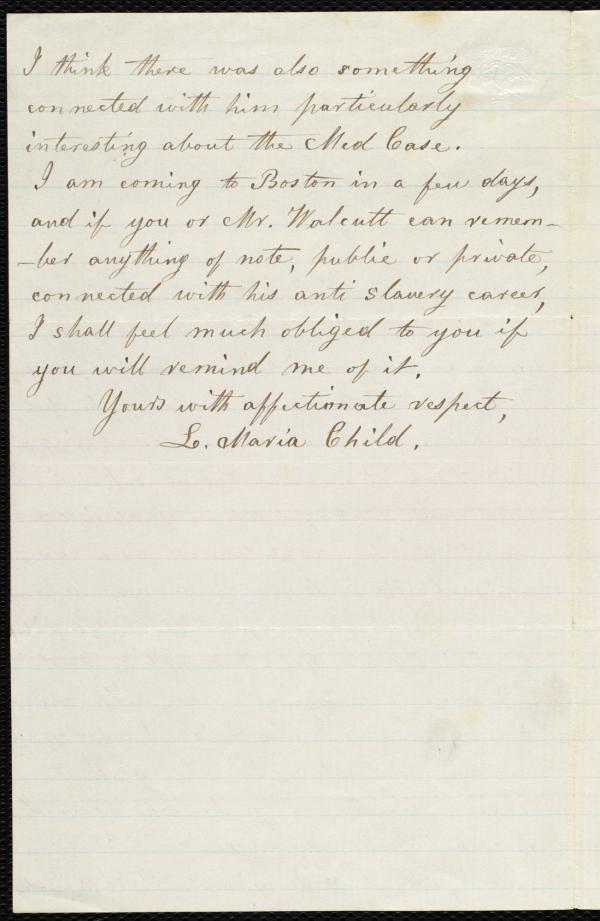 I think there was also something
connected with him particularly
interesting about the Med Case.
I am coming to Boston in a few days,
and if you or Mr. Walcutt can remem-
-ber anything of note, public or private,
connected with his anti slavery career,
I shall feel much obliged to you if
you will remind me of it.
Yours with affectionate respect,
L. Maria Child.